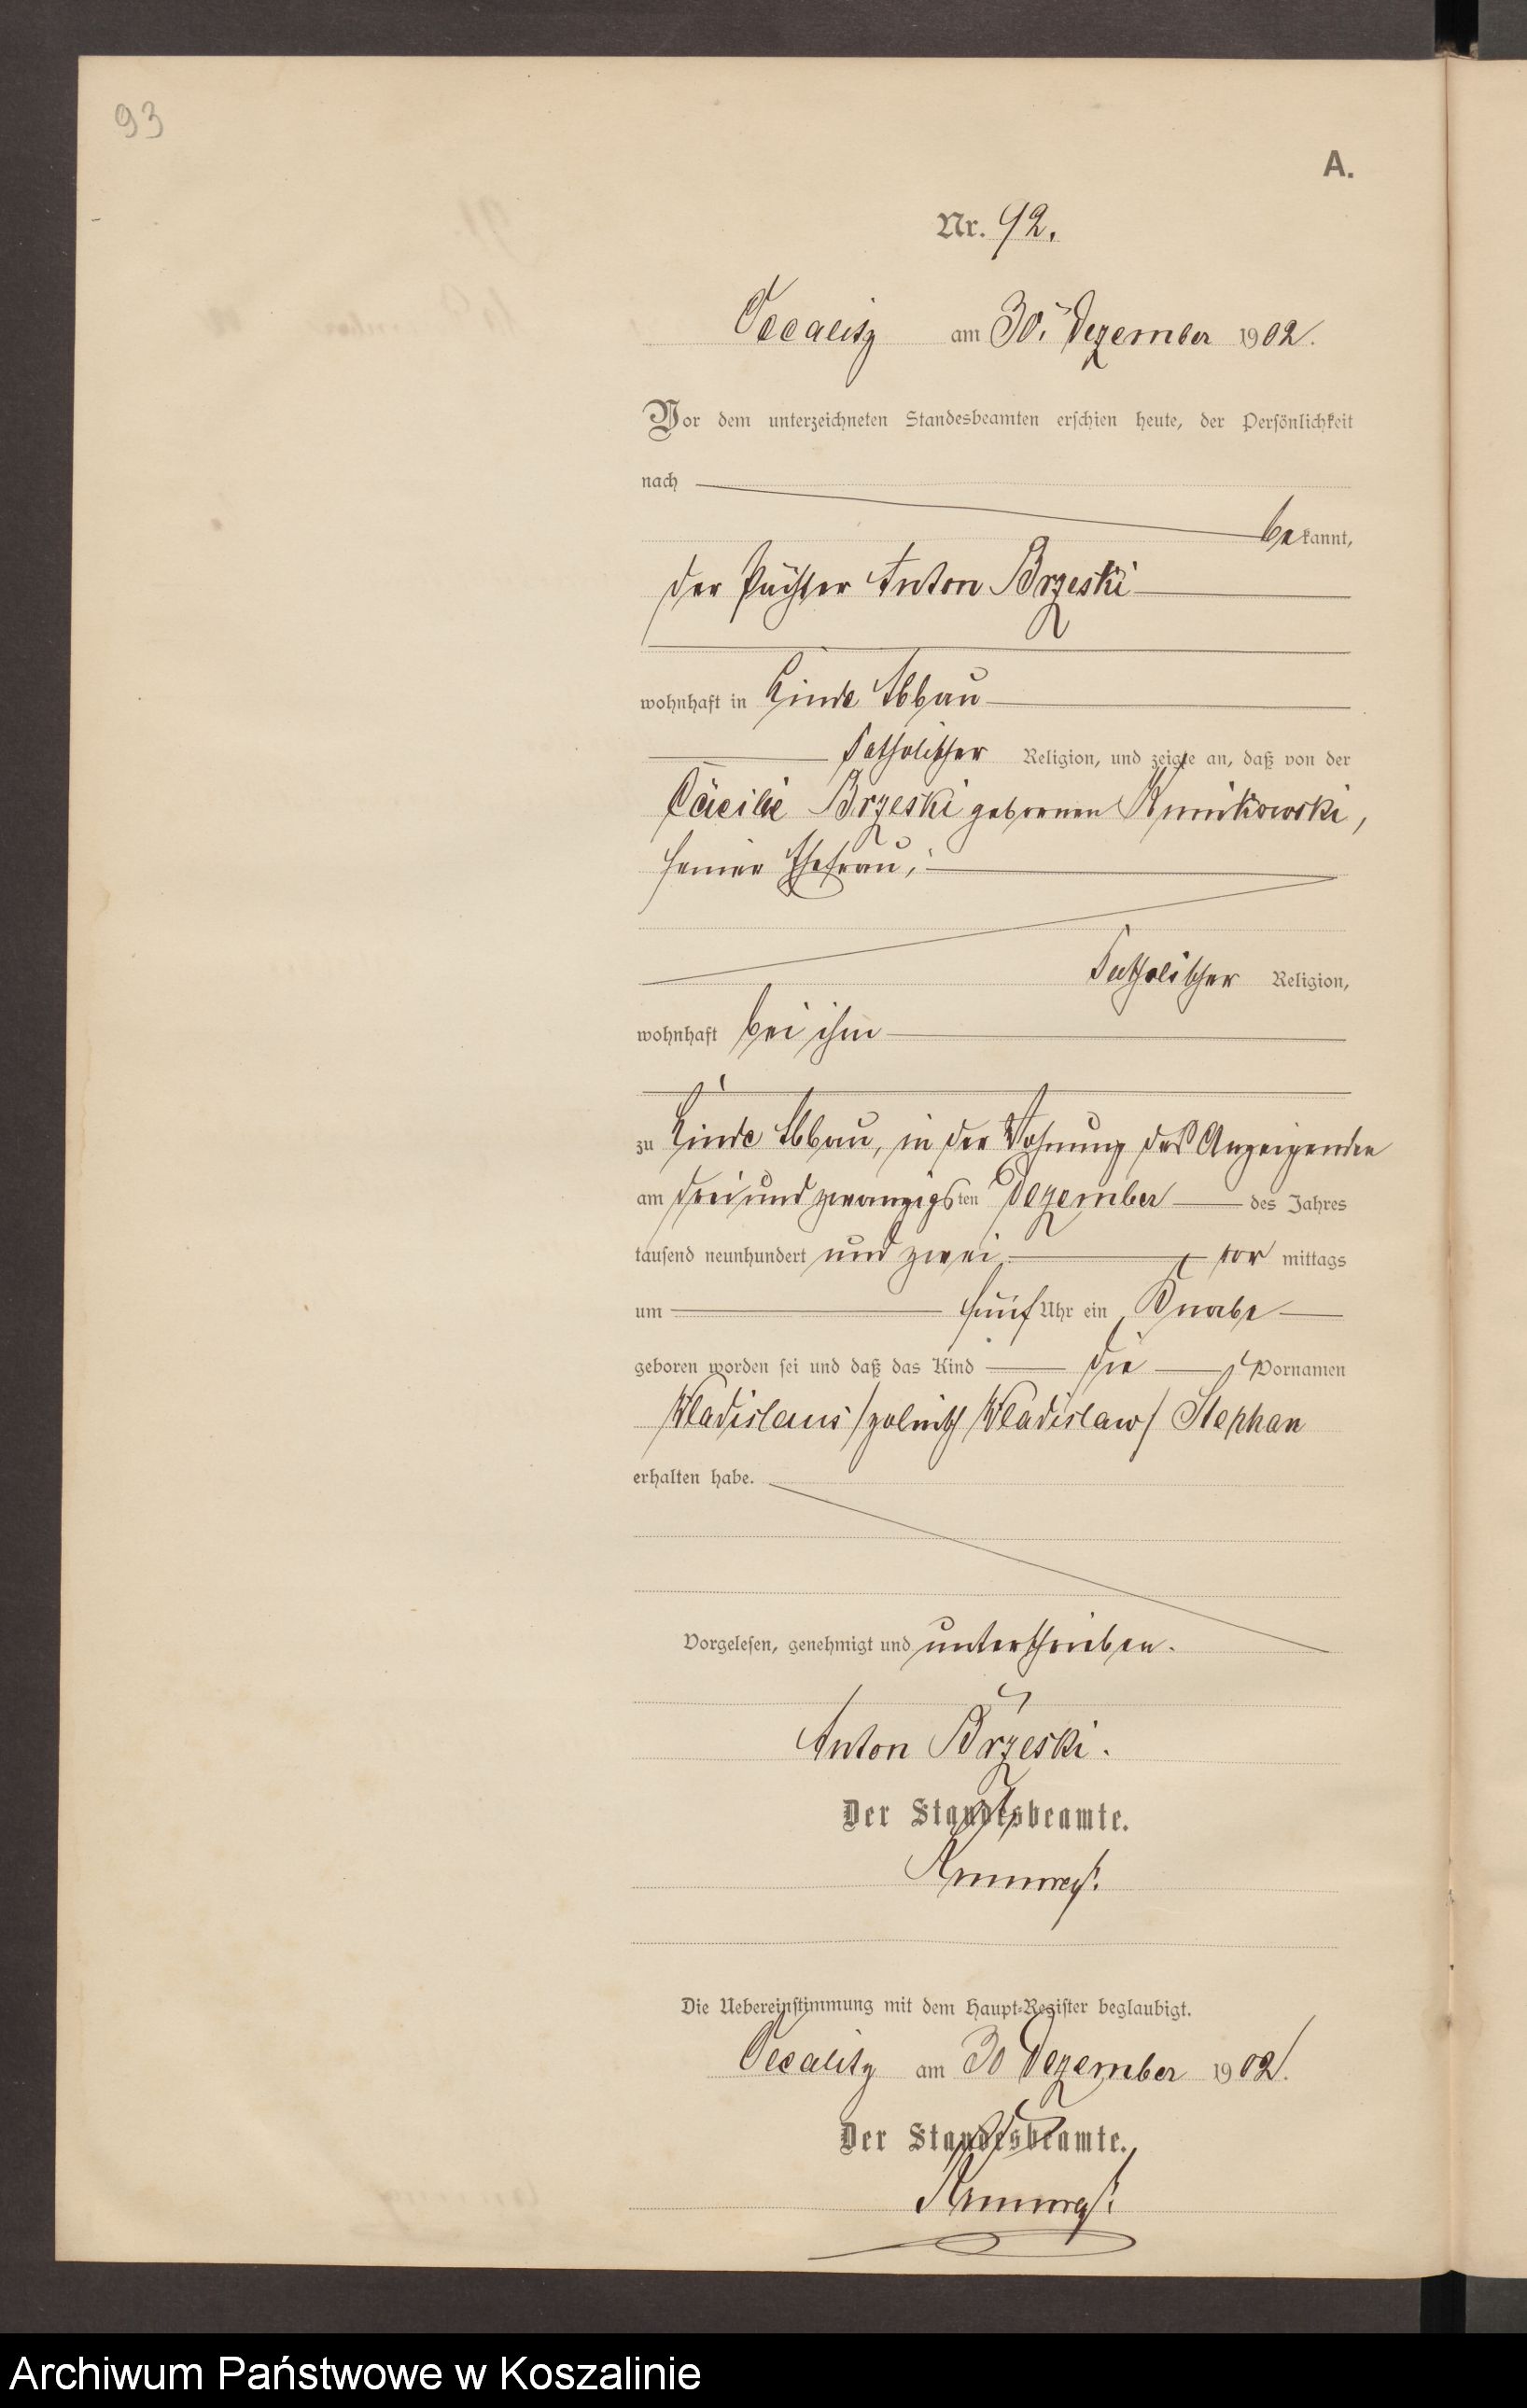 93
A.
Nr. 92.
Occalitz am 30. Dezember 1902.
Vor dem unterzeichneten Standesbeamten erschien heute, der Persönlichkeit
nach
bekannt,
der Pächter Anton Brzeski
wohnhaft in Linde Abbau
katholischer Religion, und zeigte an, daß von der
Cäcilie Brzeski geborenen
seiner Ehefrau,
katholischer Religion,
wohnhaft bei ihm
zu Linde Abbau, in der Wohnung des Anzeigenden
am drei und zwanzigsten Dezember des Jahres
tausend neunhundert und zwei vor mittags
um fünf Uhr ein Knabe
geboren worden sei und daß das Kind die Vornamen
Wladislaus /polnisch Wladislaw/ Stephan
erhalten habe.
Vorgelesen, genehmigt und unterschrieben.
Anton Brzeski.
Der Standesbeamte.
Die Uebereinstimmung mit dem Haupt-Register beglaubigt.
Occalitz am 30 Dezember 1902.
Der Standesbeamte.
Archiwum Państwowe w Koszalinie